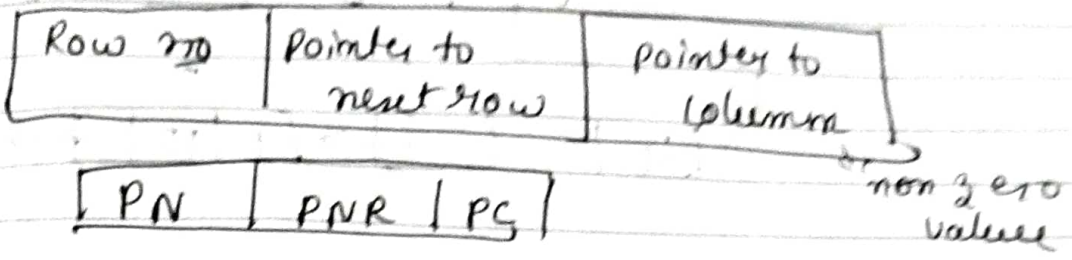 Row no
Pointer to
next row
pointer to
column
non zero
values
PN
PNR
PC